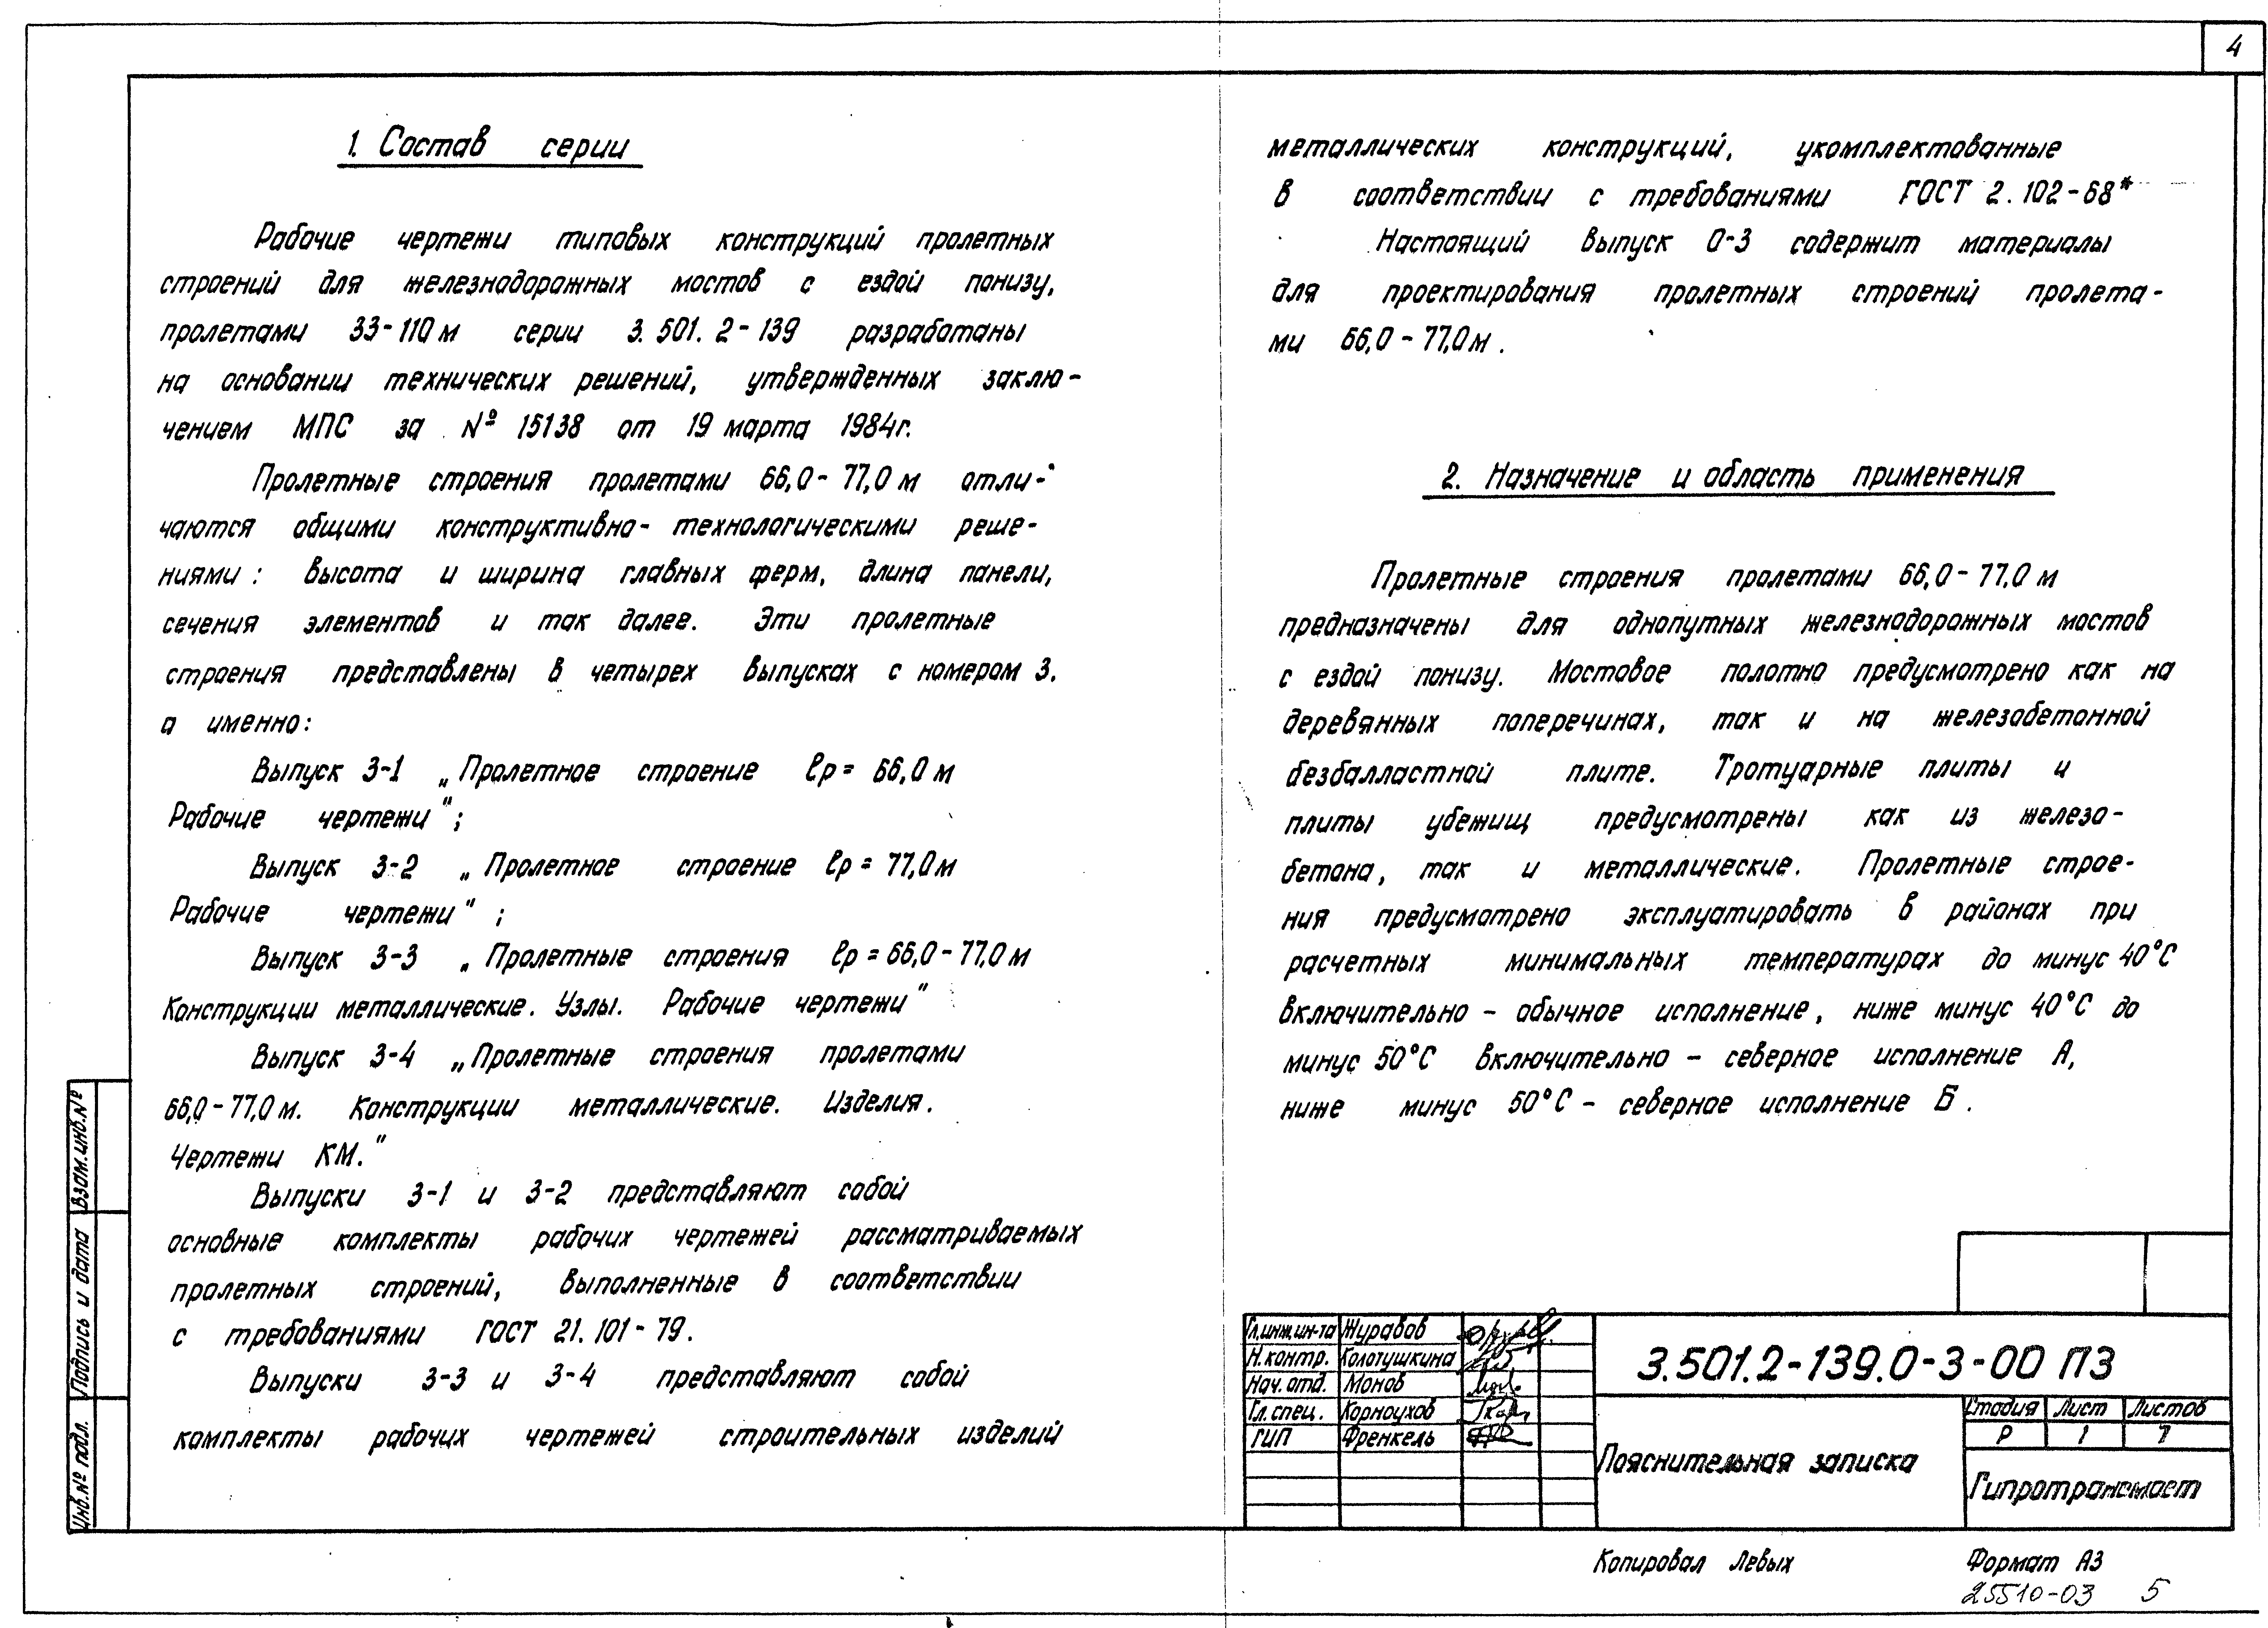 4
1. Состав серии
Рабочие чертежи типовых конструкций пролетных
строений для железнодорожных мостов с ездой понизу,
пролетами 33-110 м серии 3.501.2-139 разработаны
на основании технических решений, утвержденных заклю-
чением МПС за № 15138 от 19 марта 1984г.
Пролетные строения пролетами 66,0-77,0 м отли-
чаются общими конструктивно-технологическими реше-
ниями: высота и ширина главных ферм, длина панели,
сечения элементов и так далее. Эти пролетные
строения представлены в четырех выпусках с номером 3.
а именно:
Выпуск 3-1 „Пролетное строение lр = 66,0 м
Рабочие чертежи";
Выпуск 3-2 „Пролетное строение lр = 77,0 м
Рабочие чертежи";
Выпуск 3-3 „Пролетные строения lр = 66,0-77,0 м
Конструкции металлические. Узлы. Рабочие чертежи"
Выпуск 3-4 „Пролетные строения пролетами
66,0-77,0 м. Конструкции металлические. Изделия.
Чертежи КМ."
Выпуски 3-1 и 3-2 представляют собой
основные комплекты рабочих чертежей рассматриваемых
пролетных строений, выполненные в соответствии
с требованиями ГОСТ 21.101-79.
Выпуски 3-3 и 3-4 представляют собой
комплекты рабочих чертежей строительных изделий
металлических конструкций, укомплектованные
в соответствии с требованиями ГОСТ 2.102-68*
Настоящий выпуск 0-3 содержит материалы
для проектирования пролетных строений пролета-
ми 66,0-77,0 м.
2. Назначение и область применения
Пролетные строения пролетами 66,0-77,0 м
предназначены для однопутных железнодорожных мостов
с ездой понизу. Мостовое полотно предусмотрено как на
деревянных поперечинах, так и на железобетонной
безбалластной плите. Тротуарные плиты и
плиты убежищ предусмотрены как из железо-
бетона, так и металлические. Пролетные строе-
ния предусмотрено эксплуатировать в районах при
расчетных минимальных температурах до минус 40°С
включительно - обычное исполнение, ниже минус 40°С до
минус 50°С включительно - северное исполнение А,
ниже минус 50°С - северное исполнение Б.
Взам.инв.№
Подпись и дата
Инв.№ подл.
Гл.инж.ин-та Журавов
Н.контр. Колотушкина
Нач. отд. Монов
Гл. спец. Корноухов
ГИП Френкель
3.501.2-139.0-3-00 ПЗ
Пояснительная записка
Стадия Лист Листов
Р 1 7
Гипротрансмост
Копировал Левых Формат А3
25510-03 5